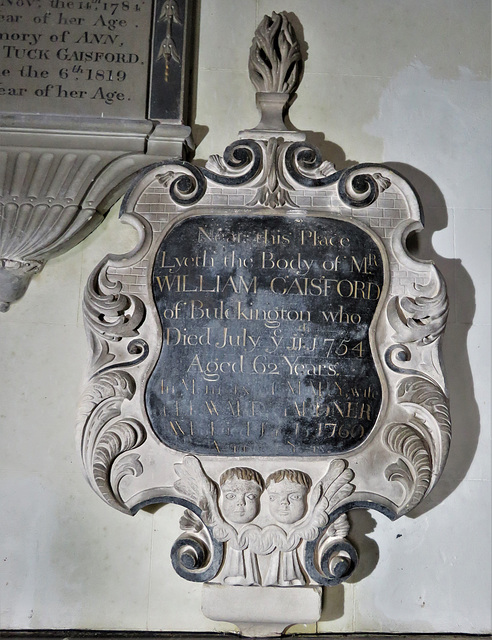 Nov. the 14th, 1784
ear of her Age.
mory of ANN,
TUCK GAISFORD,
e the 6th 1819
ear of her Age.
Near this Place
Lyeth the Body of Mr
WILLIAM GAISFORD
of Bulckington who
Died July ye 11 1754
Aged 62 Years
wife
1769